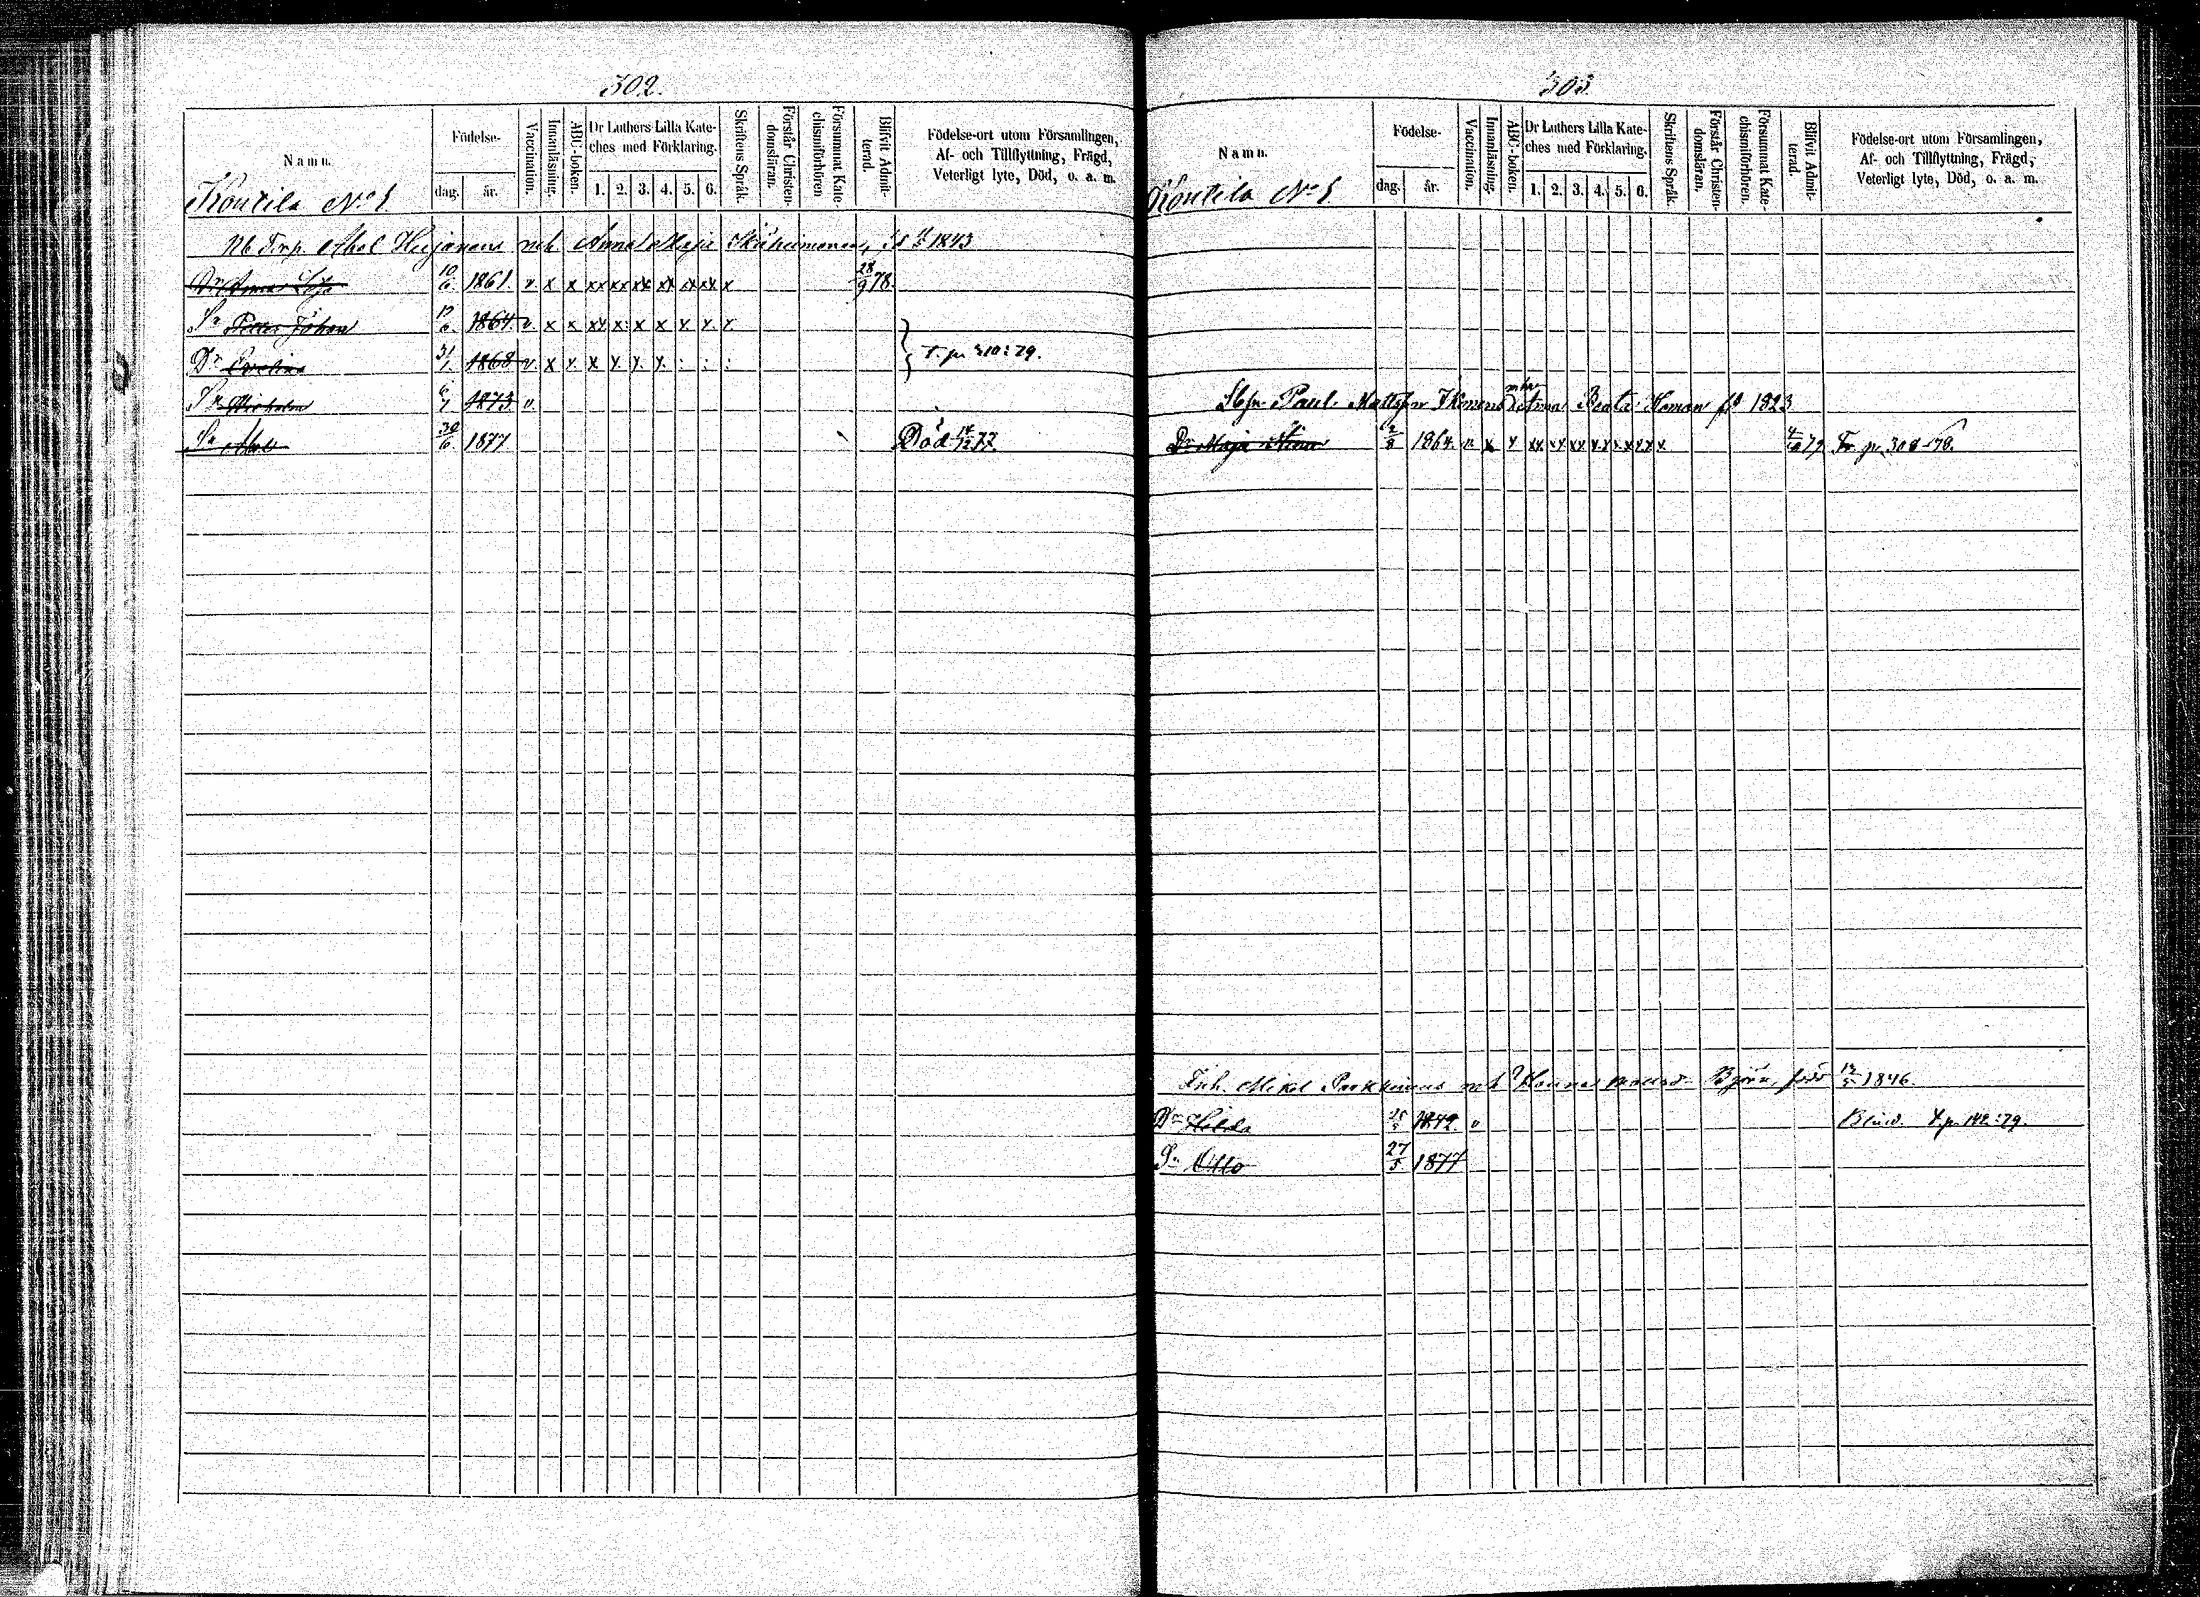 302.
Namn.
Födelse-
dag. år.
Vaccination.
Innanläsning.
ABC-boken.
Dr Luthers Lilla Kate-
ches med Förklaring.
1. 2. 3. 4. 5. 6.
Skriftens Språk.
Förstår Christen-
domsläran.
Försummat Kate-
chismiförhören
Blifvit Admit-
terad.
Födelse-ort utom Församlingen,
Af- och Tillflyttning, Frägd,
Veterligt lyte, Död, o. a. m.
Kontila No 1.
Nb Trp. Abel Heijanens och Anna Maja 1843
Dr Anna Lisa 10/6 1861 v x x xx xx xx xx xx xx x 28/9 78.
Sn Petter Johan 6. 1864 v. x x xx x x x x. x. x.
Dr Evelina 31/1. 1868 v. x x. x x. x. x. : : : T. p. 310:79.
Sn 6/1 1873 v.
Sn Abel 30/6. 1877 Död 14/12 77.
303.
Namn.
Födelse-
dag. år.
Vaccination.
Innanläsning.
ABC-boken.
Dr Luthers Lilla Kate-
ches med Förklaring.
1. 2. 3. 4. 5. 6.
Skriftens Språk.
Förstår Christen-
domsläran.
Försummat Kate-
chismiförhören.
Blifvit Admit-
terad.
Födelse-ort utom Församlingen,
Af- och Tillflyttning, Frägd,
Veterligt lyte, Död, o. a. m.
Kontila No 1.
Paul Mattsson Ikonens Beata Homan 1823
Dr Maja Stina 2/8 1864. v x x xx xx xx xx xx xx x 79 Fr. p. 308-78.
Inh. Mikel Parkkinens och Hanna Björn född 12/5 1846.
Dr Hilda v Blind. T. p. 142:79.
Sn Otto 27/5 1877